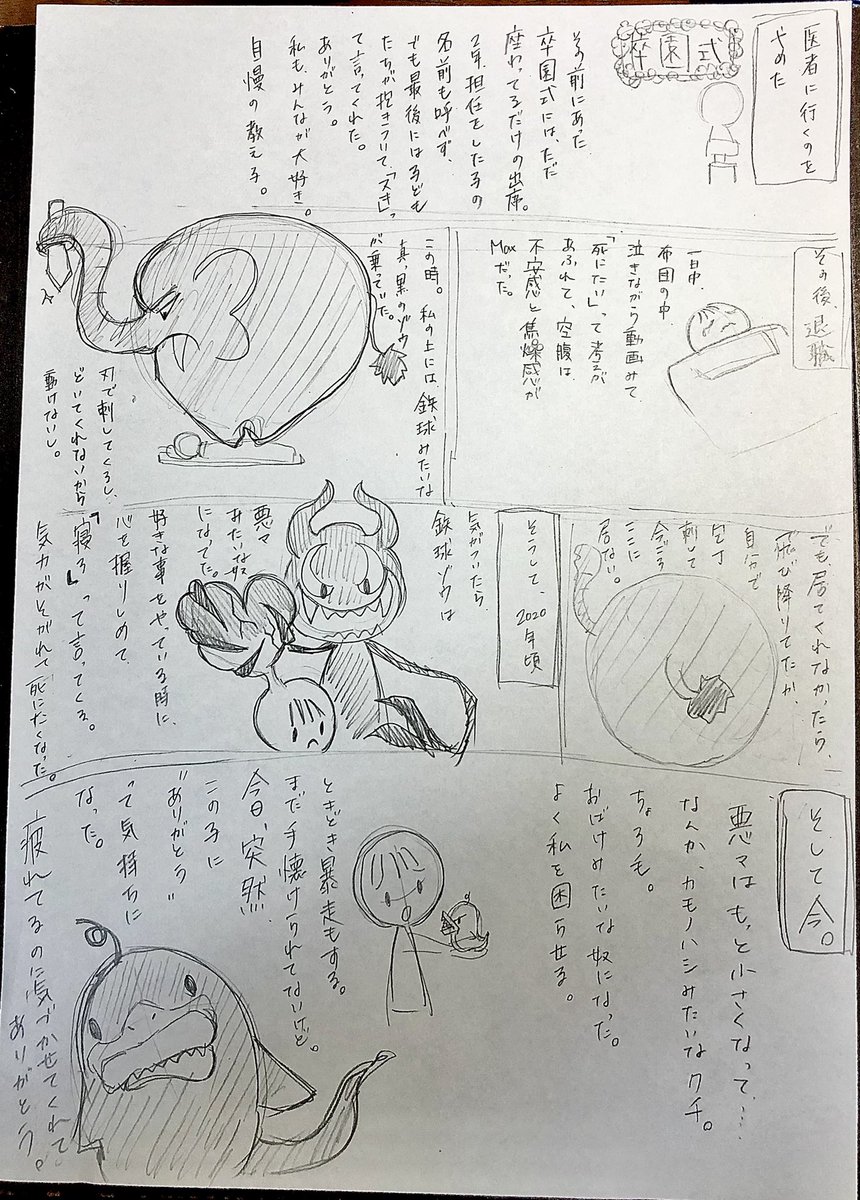 医者に行くのを
やめた
卒園式
その前にあった
卒園式には、ただ
座わってるだけの出席。
2年、担任をした子の
名前も呼べず、
でも最後には子ども
たちが抱きついて、「スキ」っ
て言ってくれた。
ありがとう。
私も、みんなが大好き。
自慢の教え子。
その後、退職
一日中、
布団の中、
泣きながら動画みて、
「死にたい」って考えが
あふれて、空腹は、
不安感と焦燥感が
Maxだった。
この時。私の上には、鉄球みたいな
真っ黒のゾウ
が乗っていた。
刃で刺してくるし、
どいてくれないから
動けないし。
でも、居てくれなかったら、
飛び降りてたか、
自分で
包丁
刺して
今ごろ
ここに
居ない。
そうして、2020年頃
気がついたら
鉄球ゾウは
悪マ
みたいな奴
になってた。
好きな事をやっている時に、
心を握りしめて、
「寝ろ」って言ってくる。
気力がそがれて死にたくなった。
そして今。
悪マはもっと小さくなって、…
なんか、カモノハシみたいなクチ。
ちょろ毛。
おばけみたいな奴になった。
よく私を困らせる。
ときどき暴走もする。
まだ手懐けられてないけど。
今日、突然、
この子に
"ありがとう"
って気持ちに
なった。
疲れてるのに気づかせてくれて
ありがとう。